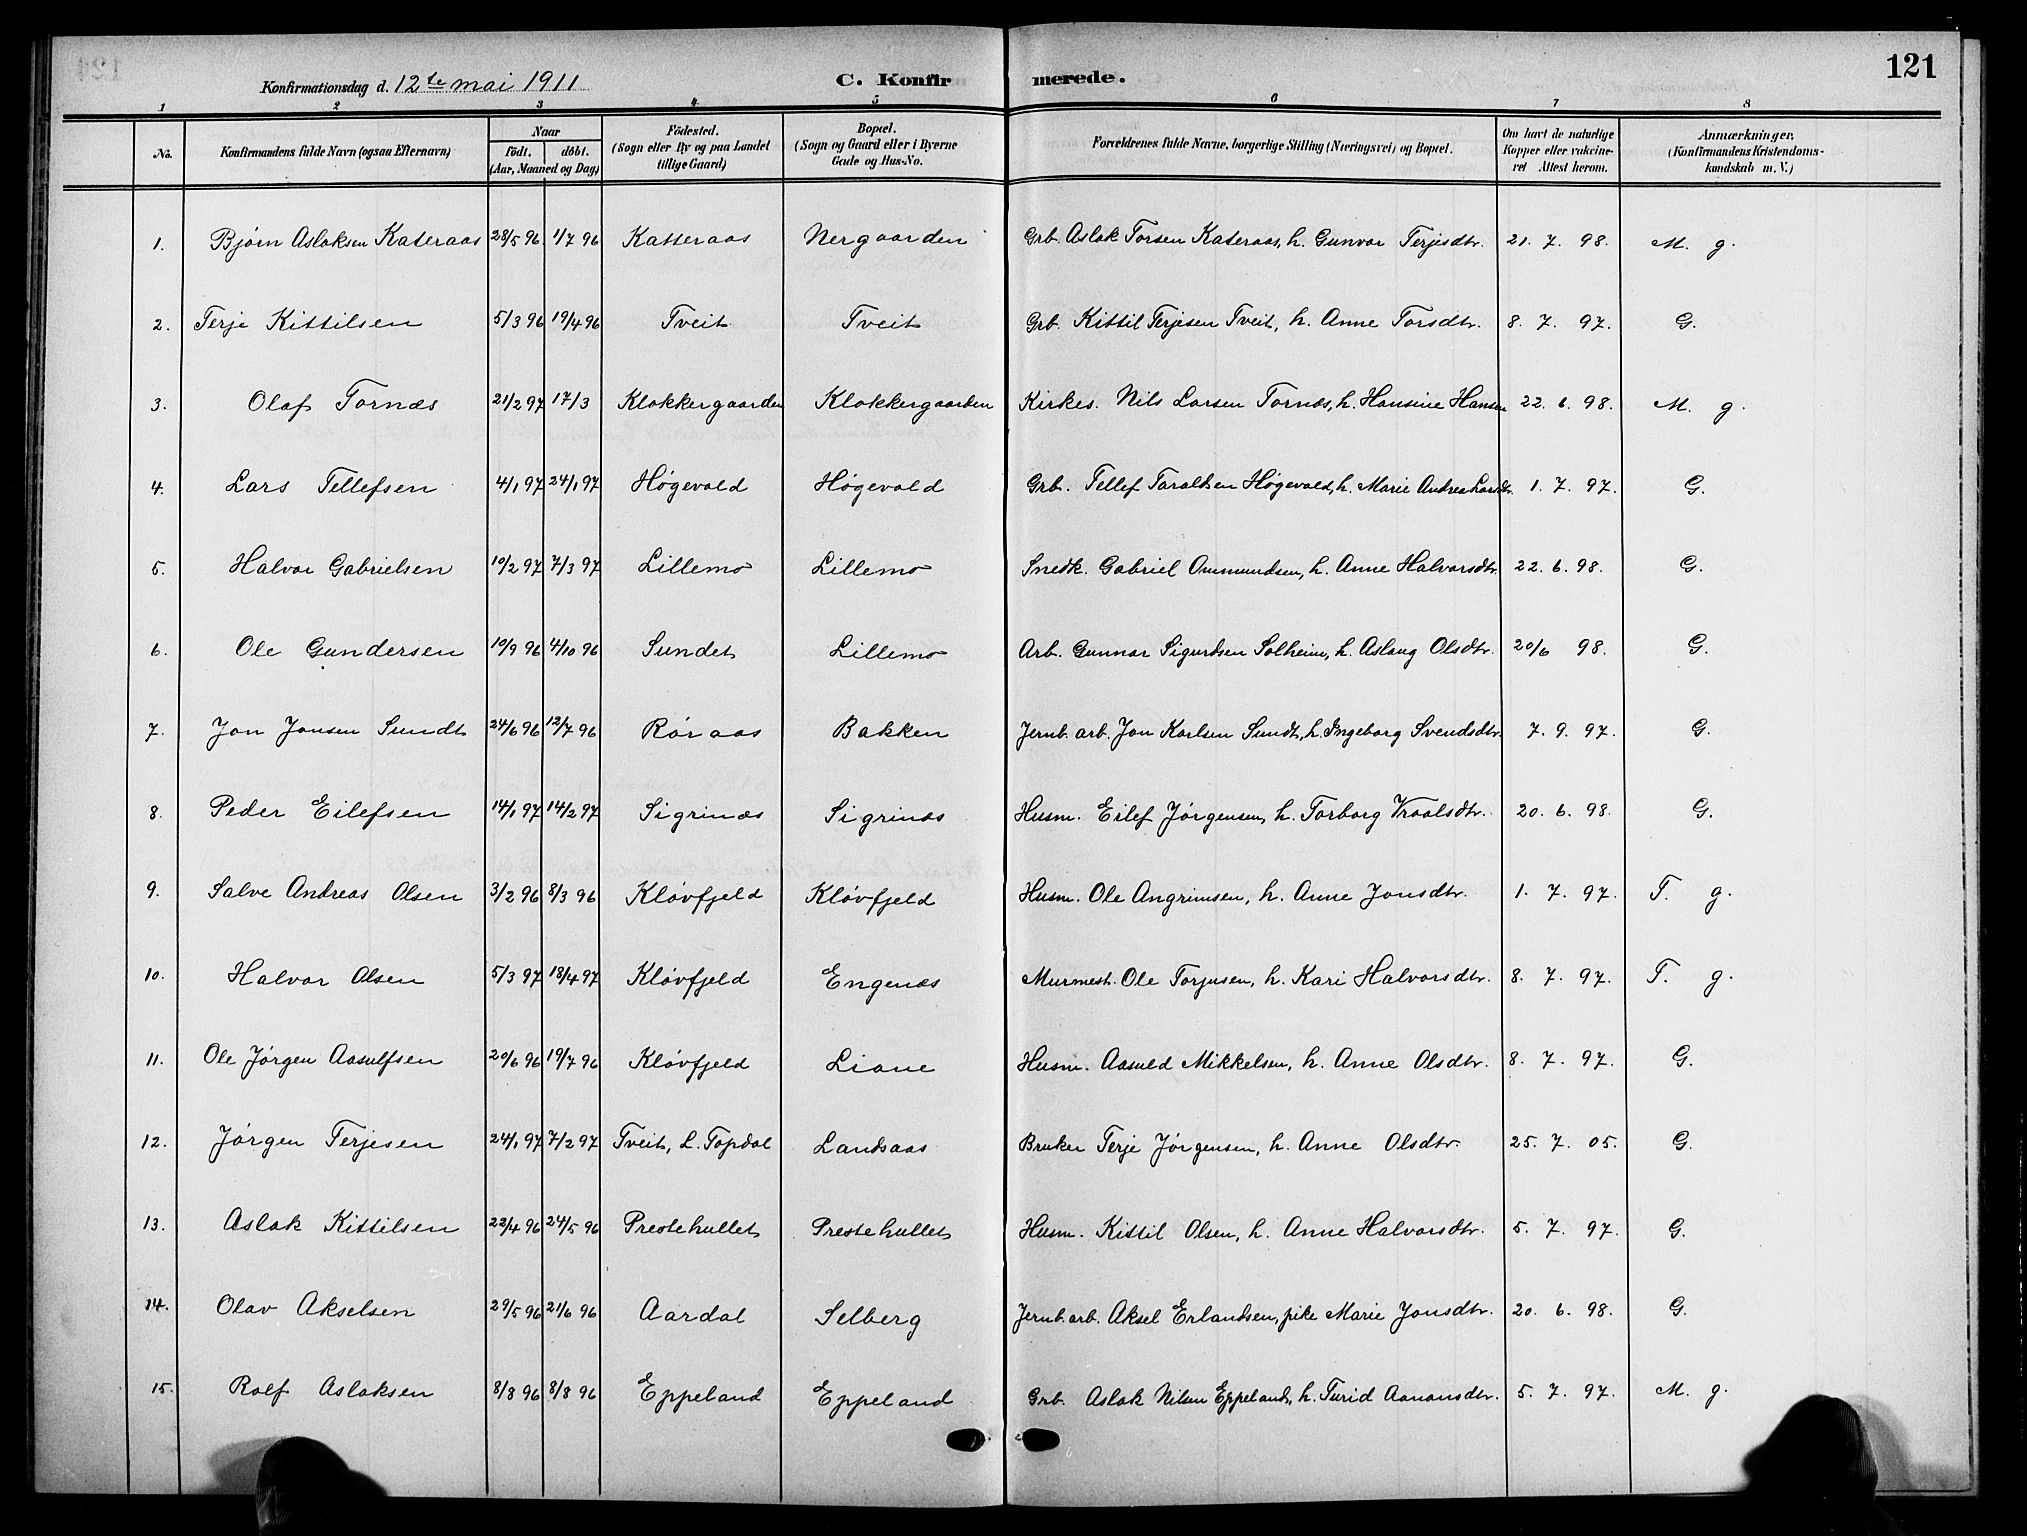 Konfirmationsdag d. 12te mai 1911 C. Konfirmerede. 121
1 2 3 4 5 6 7 8
No. Konfirmandens fulde Navn (ogsaa Efternavn) Naar födt. döbt. (Aar, Maaned og Dag) Födested. (Sogn eller By og paa Landet tillige Gaard) Bopæl. (Sogn og Gaard eller i Byerne Gade og Hus-No. Forældrenes fulde Navne, borgerlige Stilling (Næringsvei) og Bopæl. Om havt de naturlige Kopper eller vakcineret Attest herom. Anmærkninger. (Konfirmandens Kristendomskundskab m. V.)
1. Bjørn Aslaksen Kateraas 28/5 96 1/7 96 Katteraas Nergaarden Grb. Aslak Torsen Kateraas, h. Gunvor Terjesdtr. 21. 7. 98. M. g.
2. Terje Kittilsen 5/3 96 19/4 96 Tveit Tveit Grb. Kittil Terjesen Tveit, h. Anne Torsdtr. 8. 7. 97. G.
3. Olaf Tornæs 21/2 97 17/3 Klokkergaarden Klokkergaarden Kirkes. Nils Larsen Tornæs, h. Hansine Hansen 22. 6. 98. M. g.
4. Lars Tellefsen 4/1 97 24/1 97 Høgevold Høgevold Grb. Tellef Taraldsen Høgevold, h. Marie Andrea Larsdtr. 1. 7. 97. G.
5. Halvor Gabrielsen 10/2 97 7/3 97 Lillemo Lillemo Snedk. Gabriel Ommundsen, h. Anne Halvorsdtr. 22. 6. 98. G.
6. Ole Gundersen 10/9 96 4/10 96 Sundet Lillemo Arb. Gunnar Sigurdsen Solheim, h. Aslaug Olsdtr. 20/6 98. G.
7. Jon Jonsen Sundt 24/6 96 12/7 96 Røraas Bakken Jernb. arb. Jon Karlsen Sundt, h. Ingeborg Svendsdtr. 7. 9. 97. G.
8. Peder Eilefsen 14/1 97 14/2 97 Sigrinæs Sigrinæs Husm. Eilef Jørgensen, h. Torborg Vraalsdtr. 20. 6. 98. G.
9. Salve Andreas Olsen 3/2 96 8/3 96 Kløvfjeld Kløvfjeld Husm. Ole Angrimsen, h. Anne Jonsdtr. 1. 7. 97. T. g.
10. Halvor Olsen 5/3 97 18/4 97 Kløvfjeld Engenæs Murmest. Ole Torjusen, h. Kari Halvorsdtr. 8. 7. 97. T. g.
11. Ole Jørgen Aasulfsen 20/6 96 19/7 96 Kløvfjeld Liane Husm. Aasuld Mikkelsen, h. Anne Olsdtr. 8. 7. 97. G.
12. Jørgen Terjesen 24/1 97 7/2 97 Tveit, L. Topdal Landsaas Bruker Terje Jørgensen, h. Anne Olsdtr. 25. 7. 05. G.
13. Aslak Kittilsen 22/4 96 24/5 96 Prestehullet Prestehullet Husm. Kittil Olsen, h. Anne Halvorsdtr. 5. 7. 97. G.
14. Olav Akselsen 29/5 96 21/6 96 Aardal Selberg Jernb. arb. Aksel Erlandsen, pike Marie Jonsdtr. 20. 6. 98. G.
15. Rolf Aslaksen 8/8 96 8/8 96 Eppeland Eppeland Grb. Aslak Nilsen Eppeland, h. Turid Aanonsdtr. 5. 7. 97. M. g.